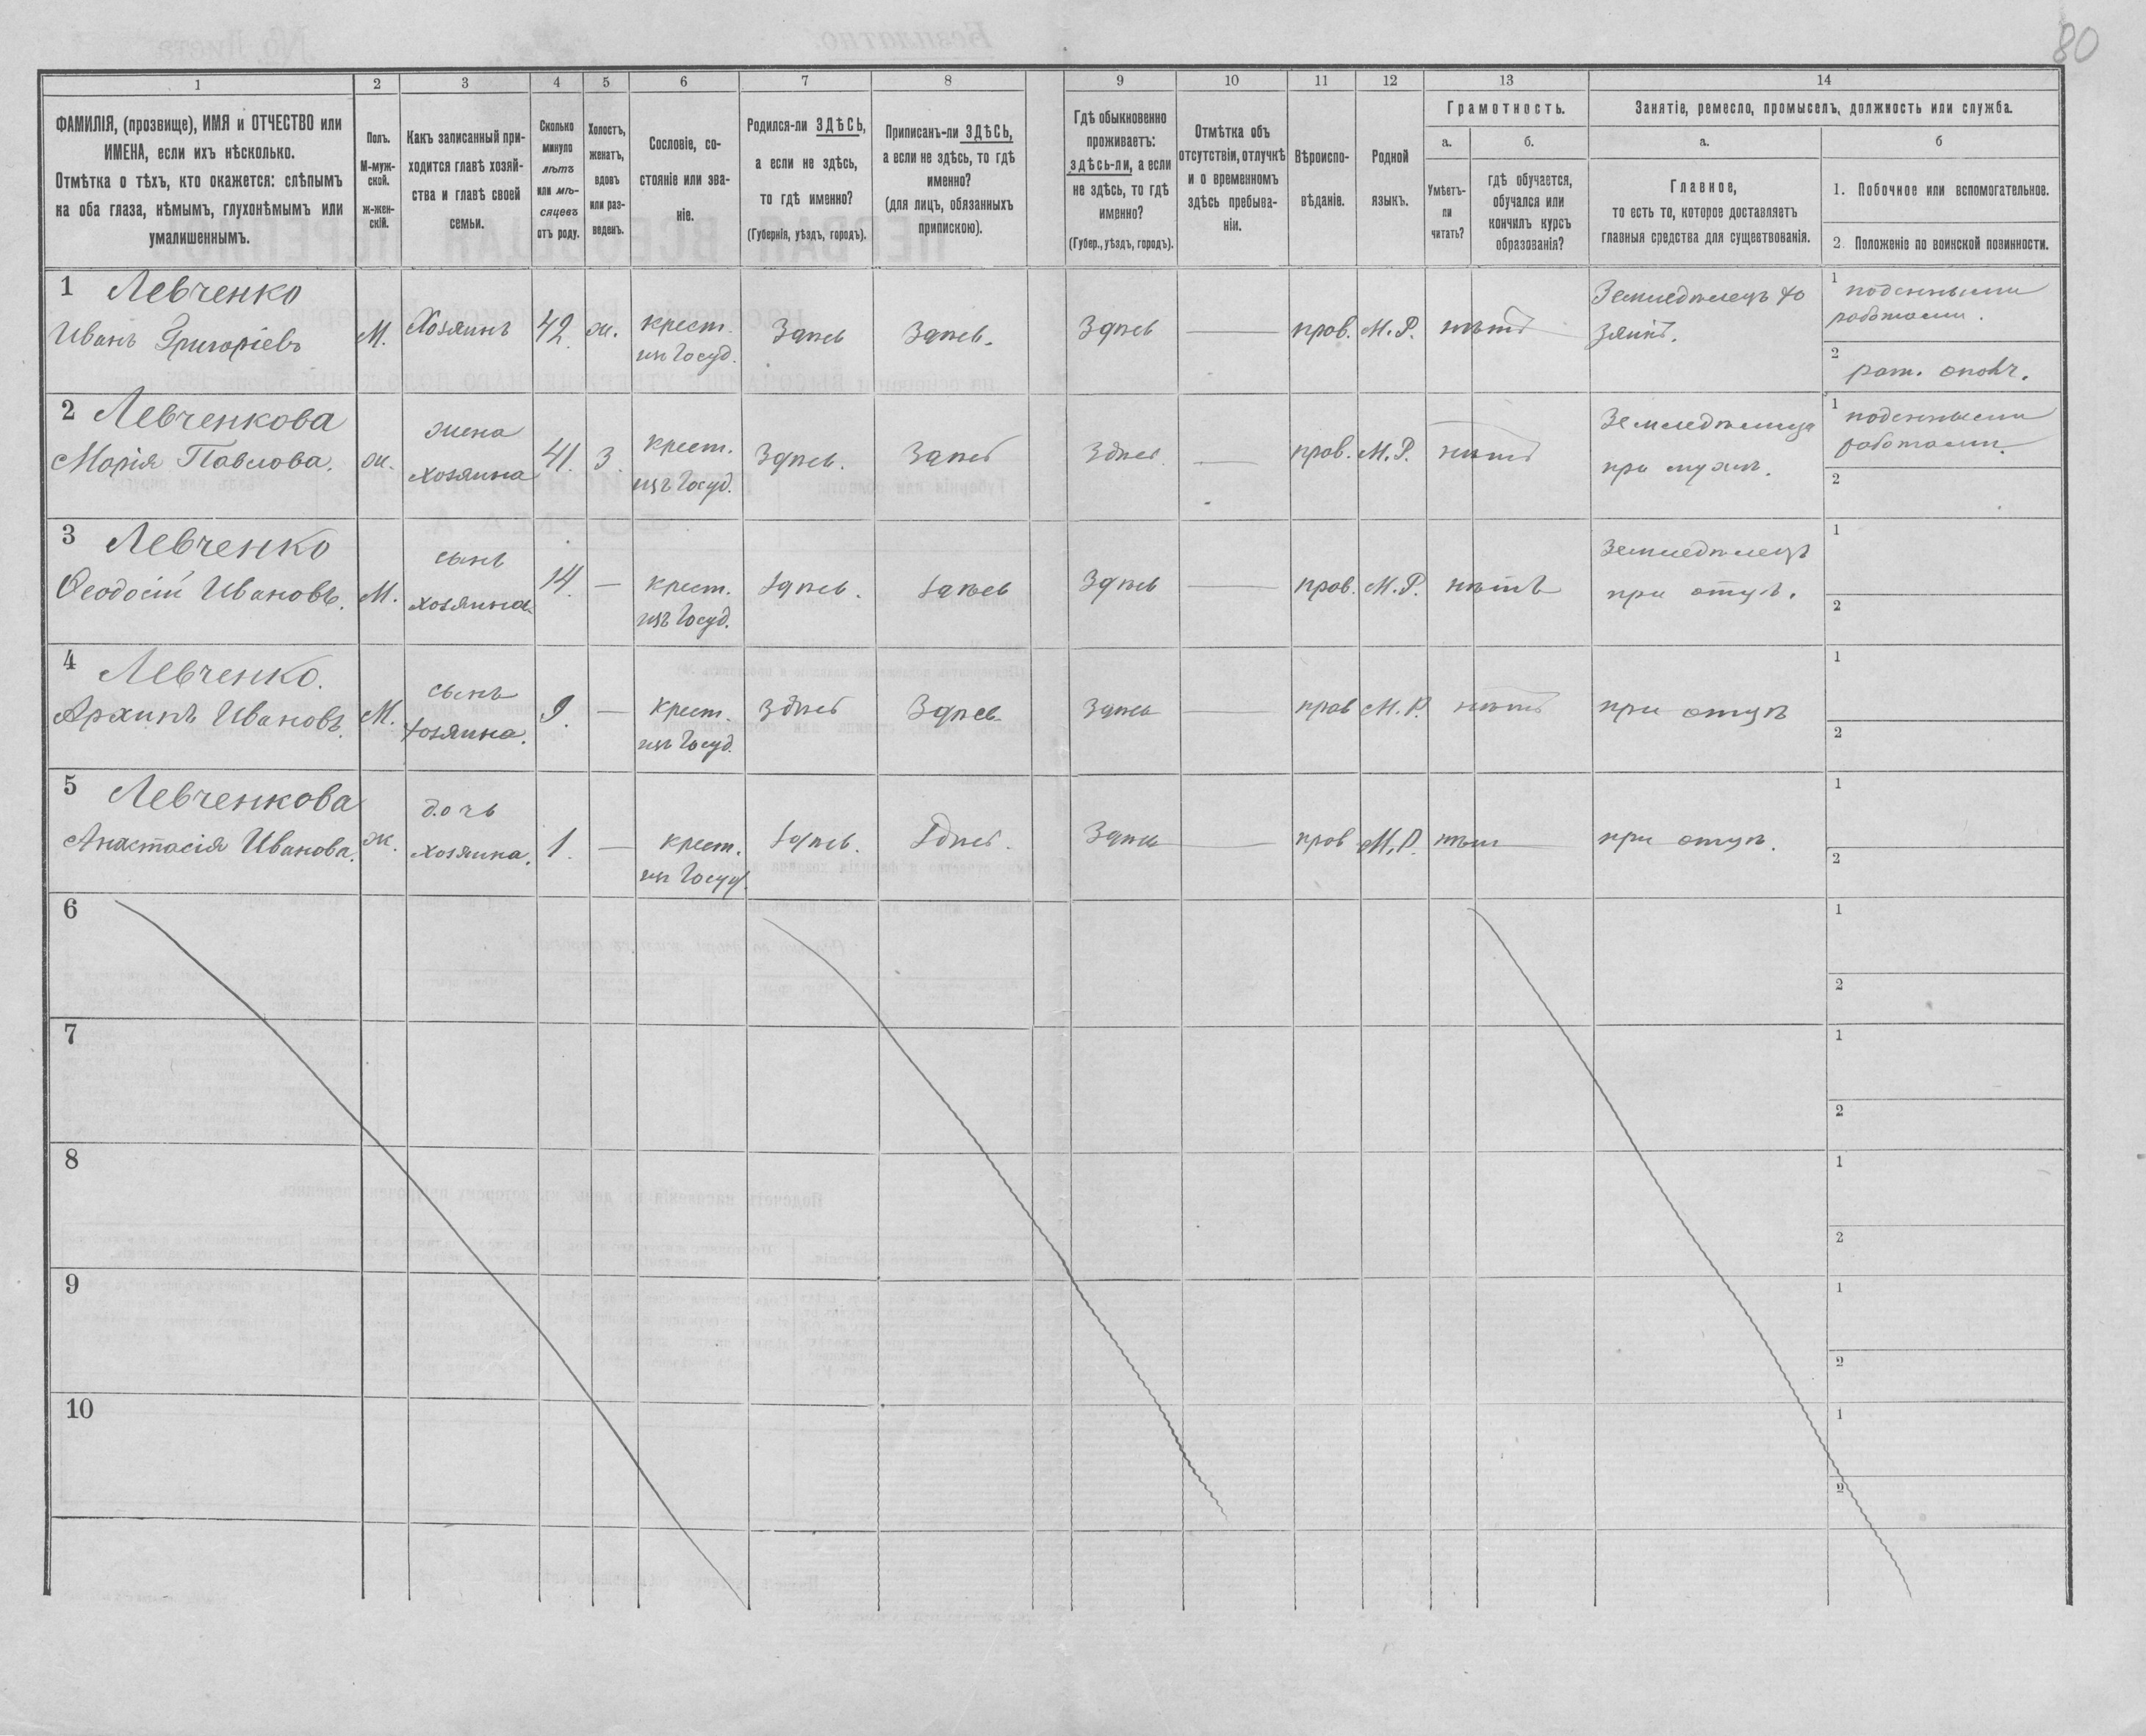 80
1 2 3 4 5 6 7 8 9 10 11 12 13 14
ФАМИЛІЯ, (прозвище), ИМЯ и ОТЧЕСТВО или
ИМЕНА, если ихъ нѣсколько.
Отмѣтка о тѣхъ, кто окажется: слѣпымъ
на оба глаза, нѣмымъ, глухонѣмымъ или
умалишеннымъ.
Полъ.
М-муж-
ской.
Ж-жен-
скій.
Какъ записанный при-
ходится главѣ хозяй-
ства и главѣ своей
семьи.
Сколько
минуло
лѣтъ
или мѣ-
сяцевъ
отъ роду.
Холостъ,
женатъ,
вдовъ
или раз-
веденъ.
Сословіе, со-
стояніе или зва-
ніе.
Родился-ли ЗДѢСЬ,
а если не здѣсь,
то гдѣ именно?
(Губернія, уѣздъ, городъ).
Приписанъ-ли ЗДѢСЬ,
а если не здѣсь, то гдѣ
именно?
(для лицъ, обязанныхъ
припискою).
Гдѣ обыкновенно
проживаетъ:
здѣсь-ли, а если
не здѣсь, то гдѣ
именно?
(Губер., уѣздъ, городъ).
Отмѣтка объ
отсутствіи, отлучкѣ
и о временномъ
здѣсь пребыва-
ніи.
Вѣроиспо-
вѣданіе.
Родной
языкъ.
Грамотность.
а.
Умѣетъ-
ли
читать?
б.
гдѣ обучается,
обучался или
кончилъ курсъ
образованія?
Занятіе, ремесло, промыселъ, должность или служба.
а.
Главное,
то есть то, которое доставляетъ
главныя средства для существованія.
б
1. Побочное или вспомогательное.
2. Положеніе по воинской повинности.
1 Левченко
Иванъ Григоріевъ
М.
Хозяинъ
42.
ж.
крест.
изъ Госуд.
Здѣсь
Здѣсь.
Здѣсь
—
прав.
М.Р.
нѣтъ
Земледѣлецъ хо
зяинъ.
1 поденными
работами.
2 рат. ополч.
2 Левченкова
Марія Павлова.
ж.
жена
хозяина
41.
З.
крест.
изъ Госуд.
Здѣсь.
Здѣсь
Здѣсь.
—
прав.
М.Р.
нѣтъ
Земледѣлица
при мужѣ.
1 поденными
работами.
2
3 Левченко
Ѳеодосій Ивановъ.
М.
сынъ
хозяина
14.
—
крест.
изъ Госуд.
Здѣсь.
Здѣсь
Здѣсь
—
прав.
М.Р.
нѣтъ
Земледѣлецъ
при отцѣ.
1
2
4 Левченко.
Архипъ Ивановъ.
М.
сынъ
хозяина.
9.
—
крест.
изъ Госуд.
Здѣсь
Здѣсь
Здѣсь
—
прав
М.Р.
нѣтъ
при отцѣ
1
2
5 Левченкова
Анастасія Иванова.
ж.
дочь
хозяина.
1.
—
крест.
изъ Госуд.
Здѣсь.
Здѣсь.
Здѣсь
—
прав
М.Р.
нѣтъ
при отцѣ.
1
2
6
1
2
7
1
2
8
1
2
9
1
2
10
1
2